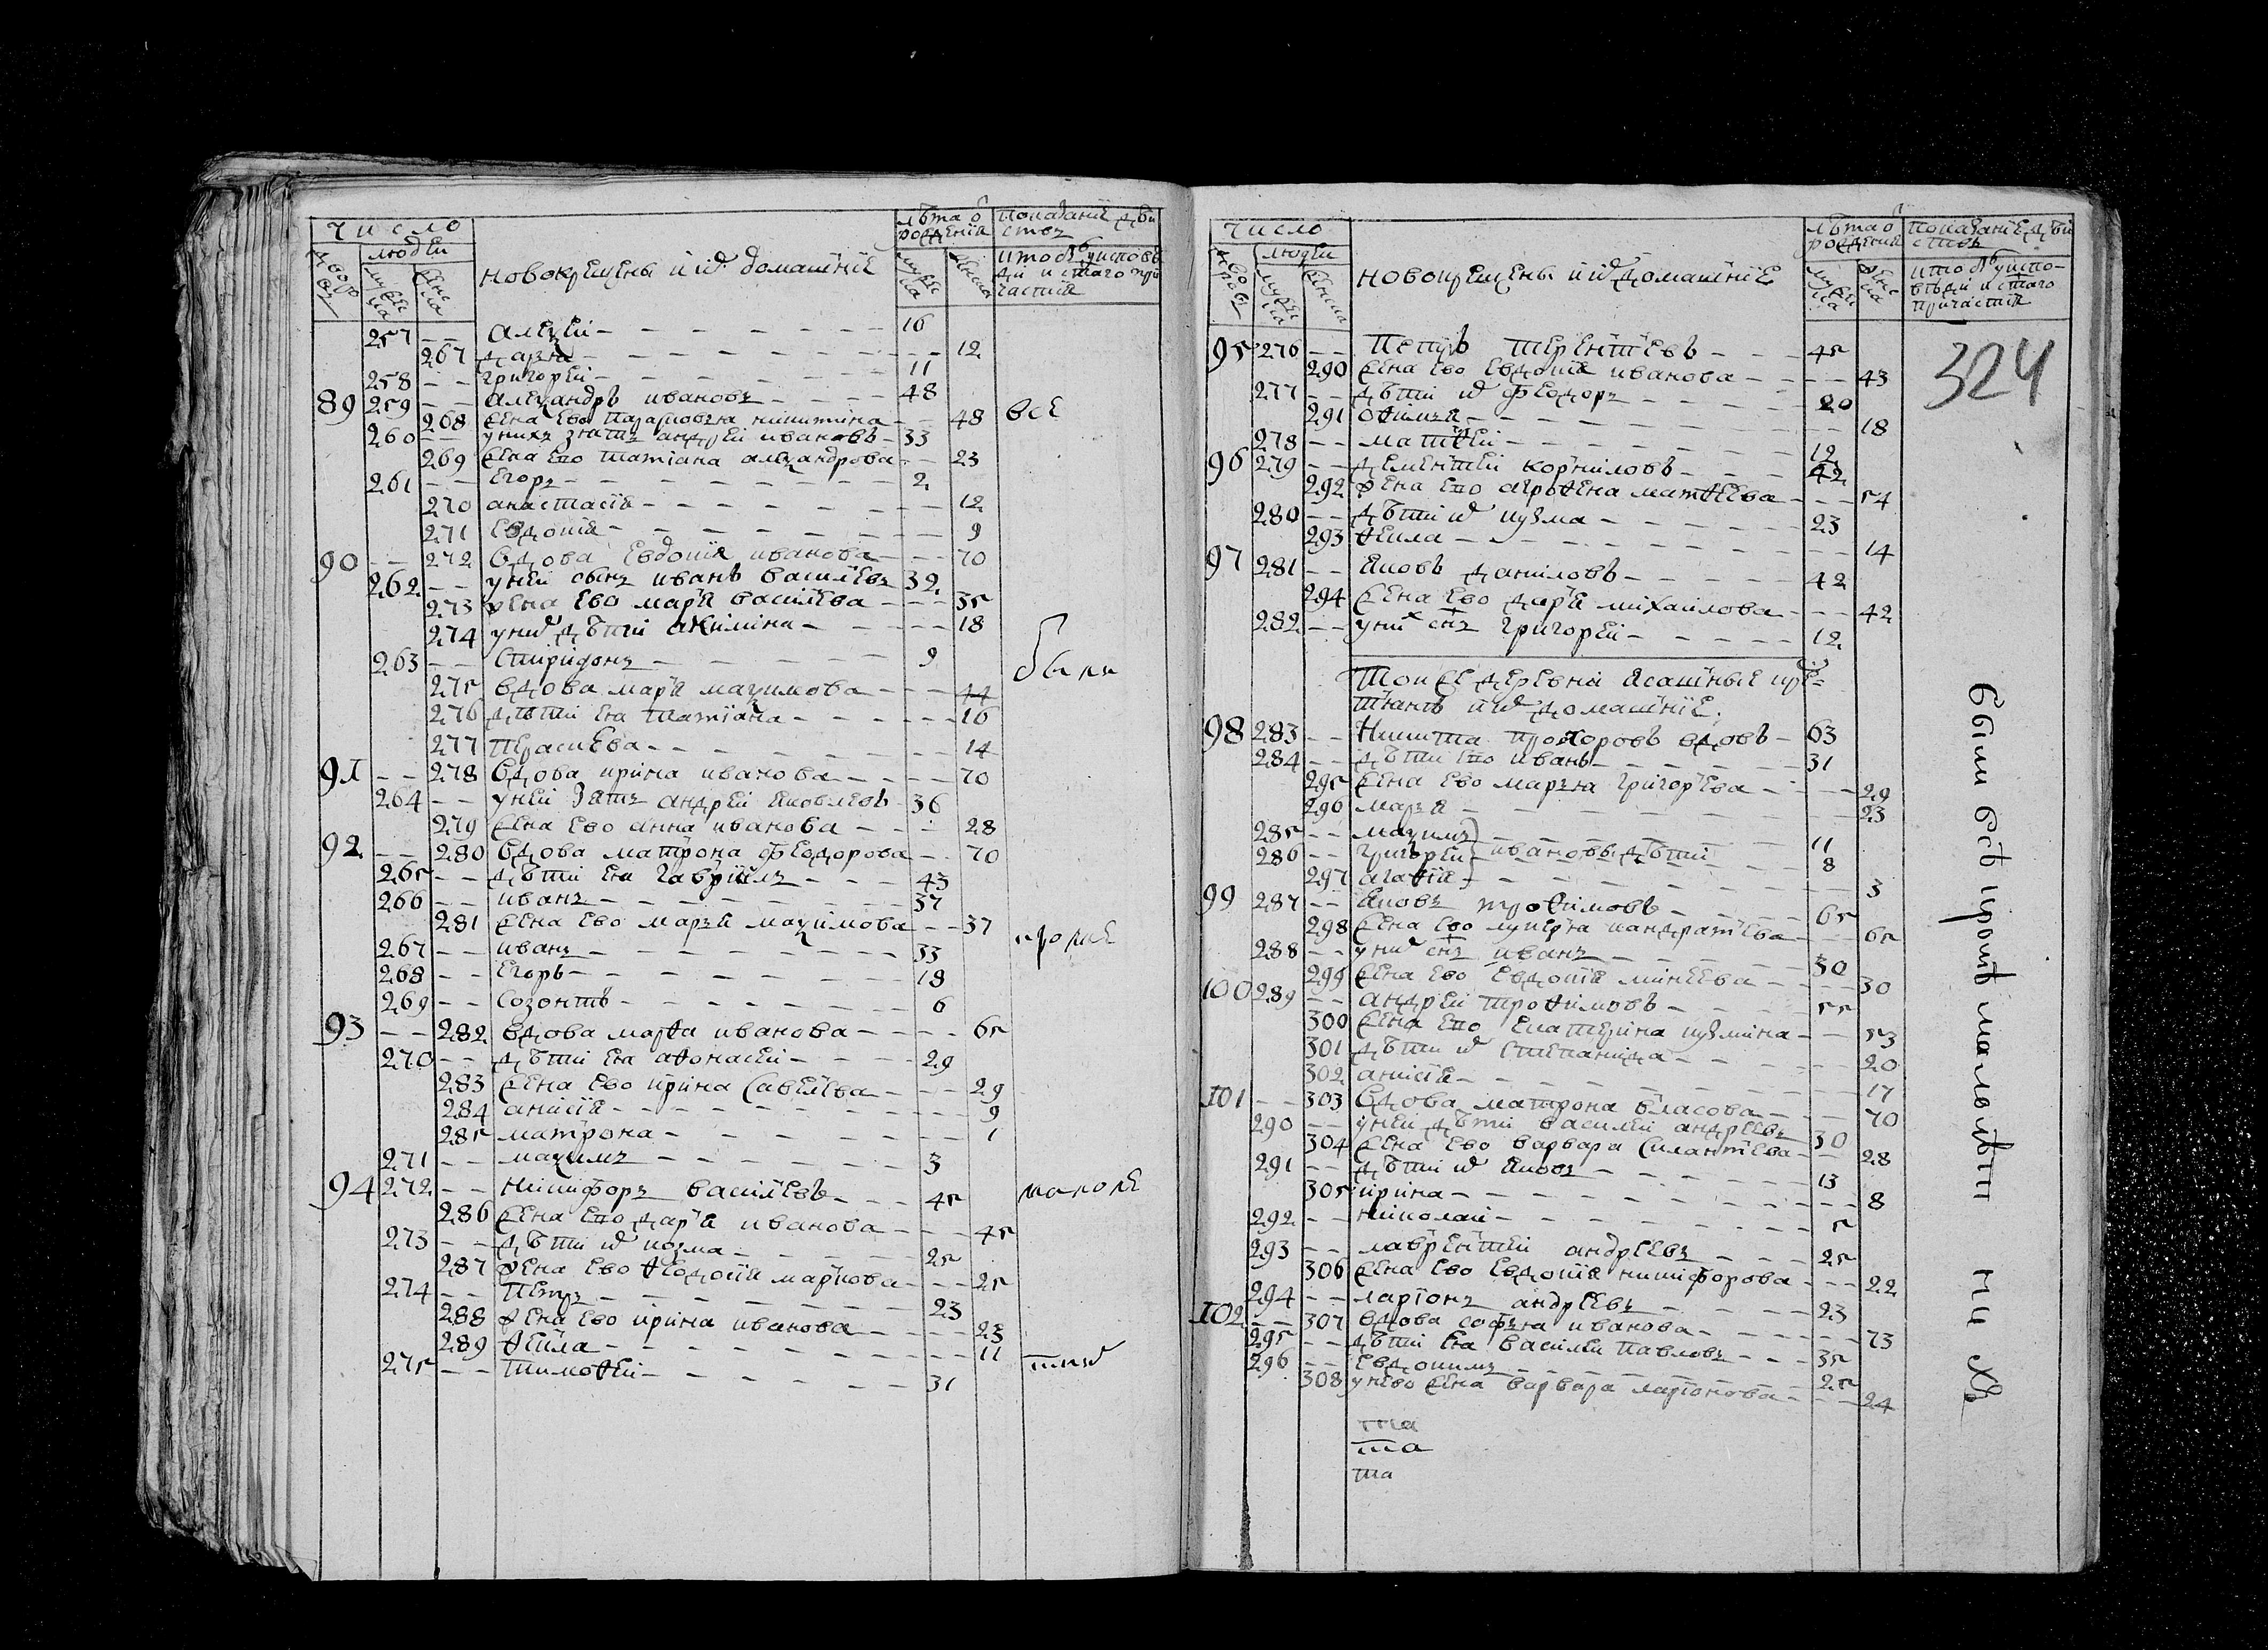 число
людей
новокрещены и их домашнїе
лѣта ѿ рожденїя
показанїе дѣйствъ
кто былъ у исповѣди и стаго причастїя
257 — алеѯей — 16
267 дарья — 12
258 — григорей — 11
89 259 — алеѯандръ ивановъ — 48
268 жена ево парасковья никитина — 48 все
260 — у нихъ зять андрей ивановъ — 33
269 жена ево татиана алеѯандрова — 23
261 — егоръ — 2
270 анастасїя — 12
271 евдокїя — 9
90 — 272 вдова евдокїя иванова — 70
262 — у ней сынъ иванъ василїевъ 32
273 жена ево марїя василїева — 35
274 у них дѣти акилина — 18
263 — спиридонъ — 9 были
275 вдова марїя маѯимова — 44
276 дѣти ея татїана — 16
277 пераскева — 14
91 — 278 вдова ирина иванова — 70
264 — у ней зять андрей яковлевъ 36
279 жена ево анна иванова — 28
92 — 280 вдова матрона феодорова — 70
265 — дѣти ея гаврїилъ — 43
266 — иванъ — 37
281 жена ево марья маѯимова — 37
кроме
267 — иванъ — 33
268 — егоръ — 18
269 — созонтъ — 6
93 — 282 вдова марѳа иванова — 65
270 — дѣти ея аѳонасей — 29
283 жена ево ирина савелїева — 29
284 анисїя — 9
285 матрона — 1
271 — маѯимъ — 3
94 272 — никифоръ василїевъ — 45
286 жена ево дарїя иванова — 45
273 — дѣти их козма — 25
287 жена ево ѳеодосїя маркова — 25
274 — петръ — 23
288 жена ево ирина иванова — 23
289 ѳекла — 11
275 — тимоѳей — 31
число
людей
новокрещены и их домашнїе
лѣта ѿ рожденїя
показанїе дѣйствъ
кто былъ у исповѣди и стаго причастїя
324
95 276 — терентїевъ — 45
290 жена ево евдокїя иванова — 43
277 — дѣти их феодоръ — 20
291 — 18
278 — матѳей — 12
96 279 — дементей корниловъ — 42
292 жена ево агрѳена матѳеева — 54
280 — дѣти их кузма — 23
293 ѳекла — 14
97 281 — яковъ даниловъ — 42
294 жена ево дарїя михаилова — 42
282 — у них снъ григорей — 12
той же деревни ясашные кре=
стьянѣ и их домашнїе
98 283 — никита прохоровъ вдовъ — 63
284 — дѣти ево иванъ — 31
295 жена ево марья григорїева — 29
296 марья — 23
285 — маѯимъ — 11
286 — григорей ивановы дѣти — 8
297 агаѳїя — 3
99 287 — яковъ троѳимовъ — 65
298 жена ево лукерья кандратїева — 65
288 — у них снъ иванъ — 30
299 жена ево евдокїя минеева — 30
100 289 — андрей троѳимовъ — 55
300 жена ево екатерина кузмина — 53
301 дѣти их степанида — 20
302 анисїя — 17
101 — 303 вдова матрона власова — 70
290 — у ней дѣти василей андреевъ 30
304 жена ево варвара силантїева — 28
291 — дѣти их яковъ — 13
305 ирина — 8
292 — николай — 5
293 — лаврентей андреевъ — 25
306 жена ево евдокїя никифорова — 22
294 — ларїонъ андреевъ — 23
102 — 307 вдова софья иванова — 73
295 — дѣти ея василей павловъ — 35
296 — евдокимъ — 25
308 у нево жена варвара ларїонова — 24
та
та
та
были всѣ кромѣ малолѣтныхъ